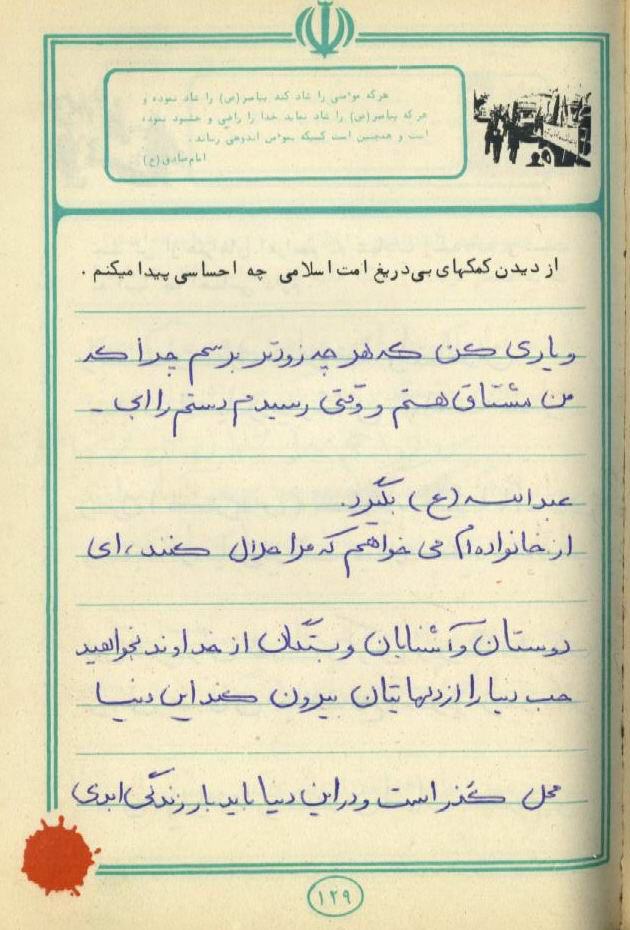 هر که مؤمنی را شاد کند پیامبر(ص) را شاد نموده و
هر که پیامبر(ص) را شاد نماید خدا را راضی و خشنود نموده
است و همچنین است کسیکه بمؤمن اندوهی رساند.
امام صادق(ع)
از دیدن کمکهای بی‌دریغ امت اسلامی چه احساسی پیدا میکنم .
و یاری کن که هر چه زودتر برسم چرا که
من مشتاق هستم و وقتی رسیدم دستم را ابی -
عبدالله (ع) بگیرد.
از خانواده‌ام می خواهم که مرا حلال کنند، ای
دوستان و آشنایان و بستگان از خداوند بخواهید
حب دنیا را از دلهایتان بیرون کند این دنیا
محل گذر است و در این دنیا باید بار زندگی ابدی
۱۲۹